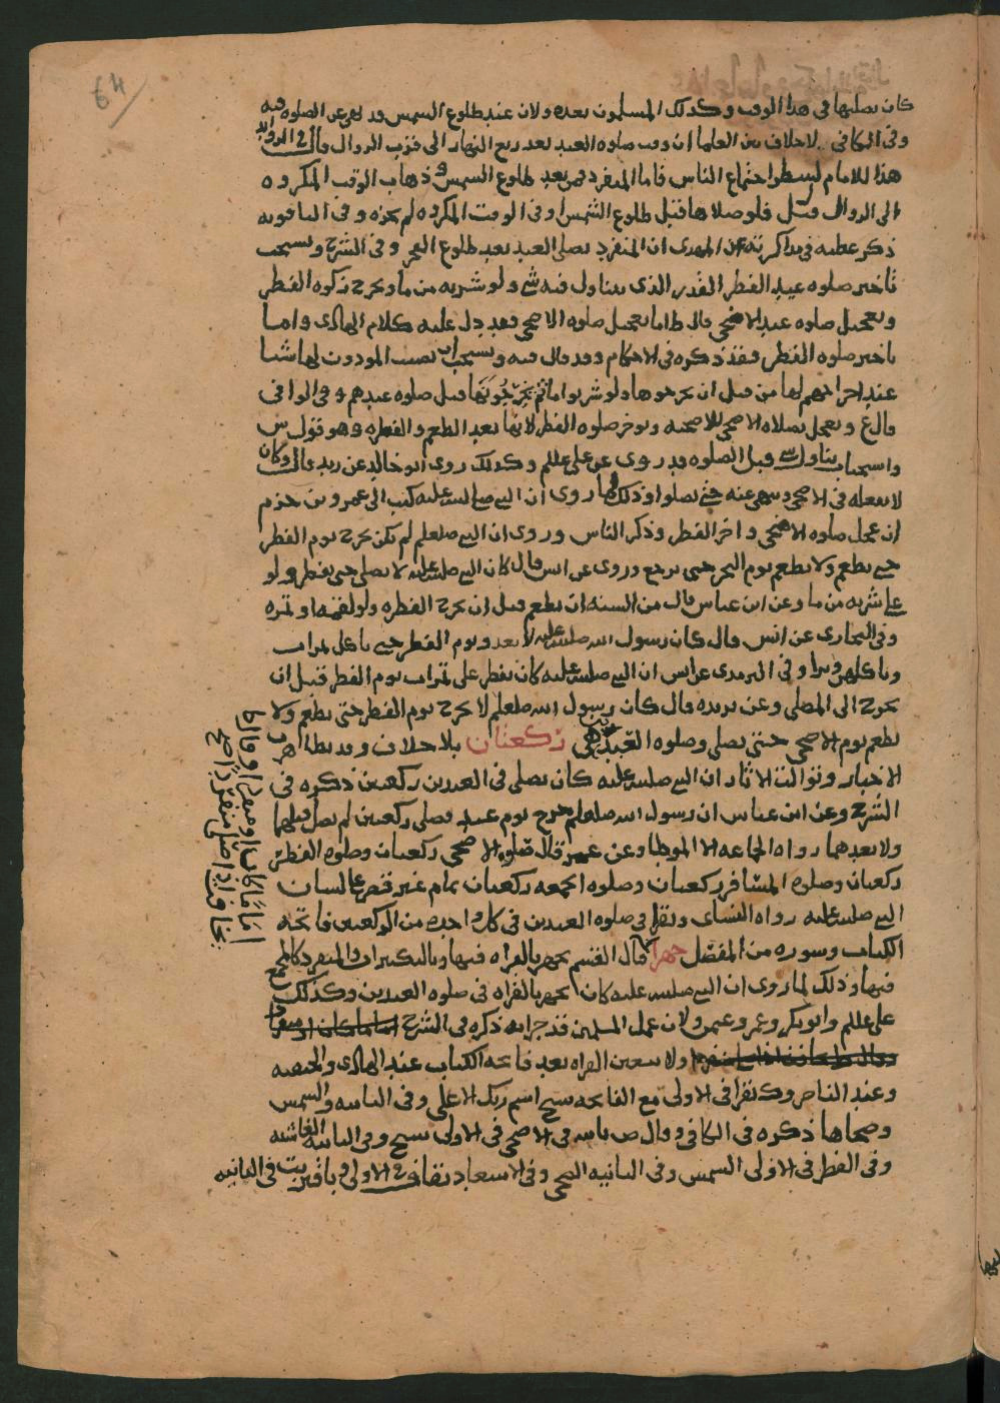 64
كان يصليها في هذا الوقت وكذلك المسلمون بعده ولان عند طلوع الشمس قد نهى عن الصلوه فيه
وفي الكافي لا خلاف بين العلما ان وقت صلوه العيد بعد ربع النهار الى قرب الزوال قال في الزوايد
هذا للامام لينتظر اجتماع الناس فاما المنفرد فمن بعد طلوع الشمس وذهاب الوقت المكروه
الى الزوال قيل فلو صلاها قبل طلوع الشمس او في الوقت المكروه لم يجزه وفي الياقوته
ذكر عطيه في مذاكرته عن المهدي ان المنفرد يصلي العيد بعد طلوع الفجر وفي الشرح ويستحب
تاخير صلوه عيد الفطر القدر الذي يتناول فيه شي ولو شربه من ما ويخرج زكوه الفطر
وتعجيل صلوه عيد الاضحى قال ط اما تعجيل صلوه الاضحى فقد دل عليه كلام الهادي واما
تاخير صلوه الفطر فقد ذكره في الاحكام وقد قال فيه ويستحب
عند اخراجهم لها من قبل ان يخرجوها ولو شربوا ما ثم يخرجونها قبل صلوه عيدهم وفي الوافي
قال ع ويعجل بصلاه الاضحى للاضحيه ويوخر صلوه الفطر لانها بعد الطعم والفطره وهو قول س
واستحباب تناول شي قبل الصلوه قد روي عن علي عللم وكذلك روى ابو خالد عن زيد قال وكان
لا يفعله في الاضحى وينهى عنه حتى يصلوا وذلك لما روي ان النبي صلى الله عليه كتب الى عمرو بن حزم
ان عجل صلوه الاضحى واخر الفطر وذكر الناس وروي ان النبي صلعلم لم يكن يخرج يوم الفطر
حتى يطعم ولا يطعم يوم النحر حتى يرجع وروي عن انس قال كان النبي صلى الله عليه لا يصلي حتى يفطر ولو
على شربه من ما وعن ابن عباس قال من السنه ان يطعم قبل ان يخرج الفطره ولو لقمه او تمره
وفي البخاري عن انس قال كان رسول الله صلى الله عليه لا يغدو يوم الفطر حتى ياكل تمرات
وياكلهن وترا وفي الترمذي عن انس ان النبي صلى الله عليه كان يفطر على تمرات يوم الفطر قبل ان
يخرج الى المصلى وعن بريده قال كان رسول الله صلعلم لا يخرج يوم الفطر حتى يطعم ولا
يطعم يوم الاضحى حتى يصلي وصلوه العيد هي ركعتان بلا خلاف وقد
الاخبار وتوالت الاثار ان النبي صلى الله عليه كان يصلي في العيدين ركعتين ذكره في
الشرح وعن ابن عباس ان رسول الله صلعلم خرج يوم عيد فصلى ركعتين لم يصل قبلهما
ولا بعدهما رواه الجماعه الا الموطا وعن عمر قال صلوه الاضحى ركعتان وصلوه الفطر
ركعتان وصلوه المسافر ركعتان وصلوه الجمعه ركعتان تمام غير قصر على لسان
النبي صلى الله عليه رواه النساى ويقرا في صلوه العيدين في كل واحده من الركعتين فاتحه
الكتاب وسوره من المفصل جهرا قال القسم يجهر بالقراه فيها وبالتكبيرات والمنفرد كالجمع
فيها وذلك لما روي ان النبي صلى الله عليه كان يجهر بالقراه في صلوه العيدين وكذلك
علي عللم وابو بكر وعمر ولان عمل المسلمين قد جرا به ذكره في الشرح
ولا يتعين القراه بعد فاتحه الكتاب عند الهادي والحنفيه
وعند الناصر وك يقرا في الاولى مع الفاتحه سبح اسم ربك الاعلى وفي الثانيه والشمس
وضحاها ذكره في الكافي وقال ص بالله في الاضحى في الاولى سبح وفي الثانيه الغاشيه
وفي الفطر في الاولى الشمس وفي الثانيه الضحى وفي الاسعاد يقرا ق في الاولى وباقتربت في الثانيه